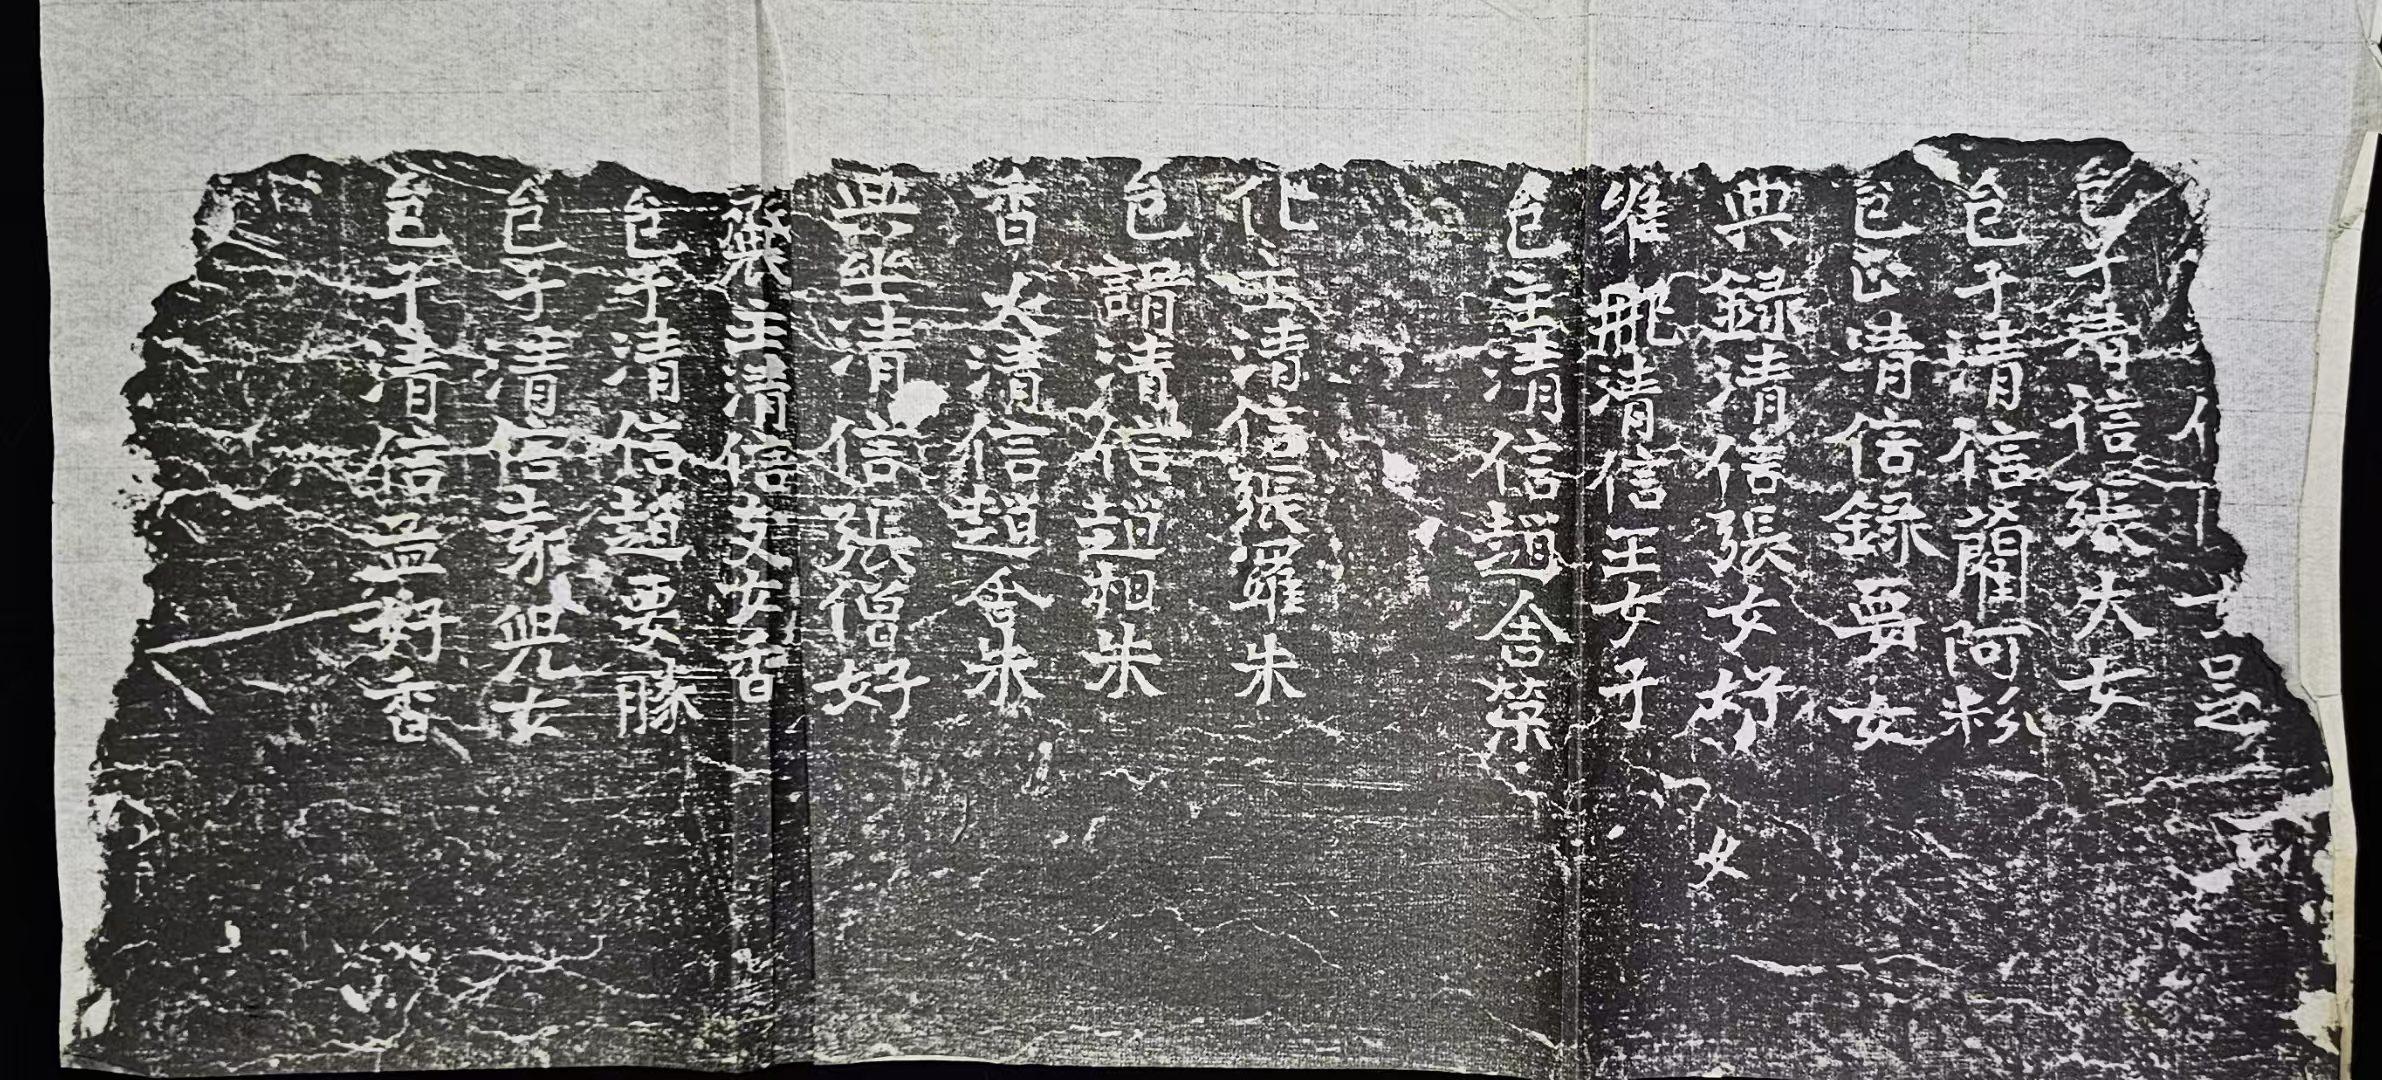 邑子清信張大女
邑子清信藺阿粉
邑正清信錄要女
典錄清信張女好
女
唯那清信王女子
邑主清信趙舍榮
化主清信張羅朱
邑謂清信趙相朱
香火清信趙舍朱
典坐清信張僧好
王清信女香
邑子清信趙要勝
邑子清信兕女
邑子清信孟好香